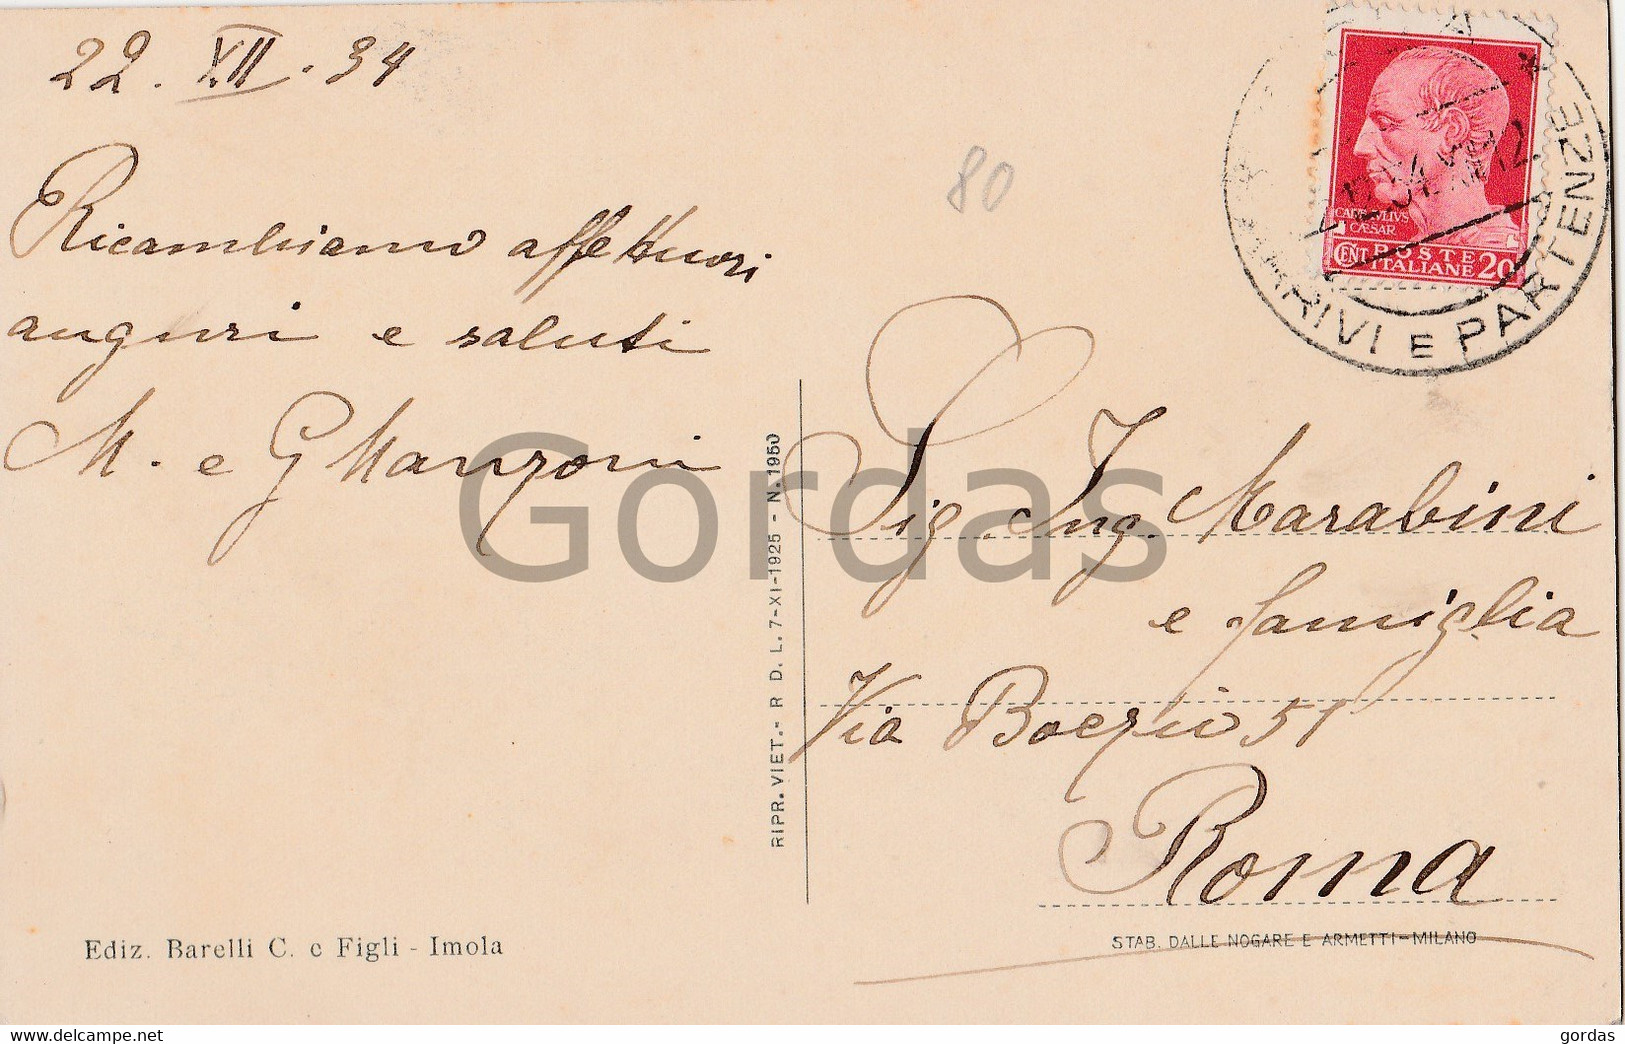 22. XII. 34
80
Ricambiamo affettuosi
auguri e saluti
M. e G Manzoni
CENT POSTE ITALIANE 20
CAESAR
ARRIVI E PARTENZE
Sig. Ing. Marabini
e famiglia
Via Boezio 51
Roma
RIPR. VIET. - R D. L. 7-XI-1925 - N. 1950
Ediz. Barelli C. e Figli - Imola
STAB. DALLE NOGARE E ARMETTI-MILANO
Gordas
www.delcampe.net
gordas